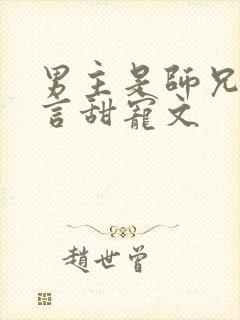 男主是師兄
言甜寵文
趙世曾